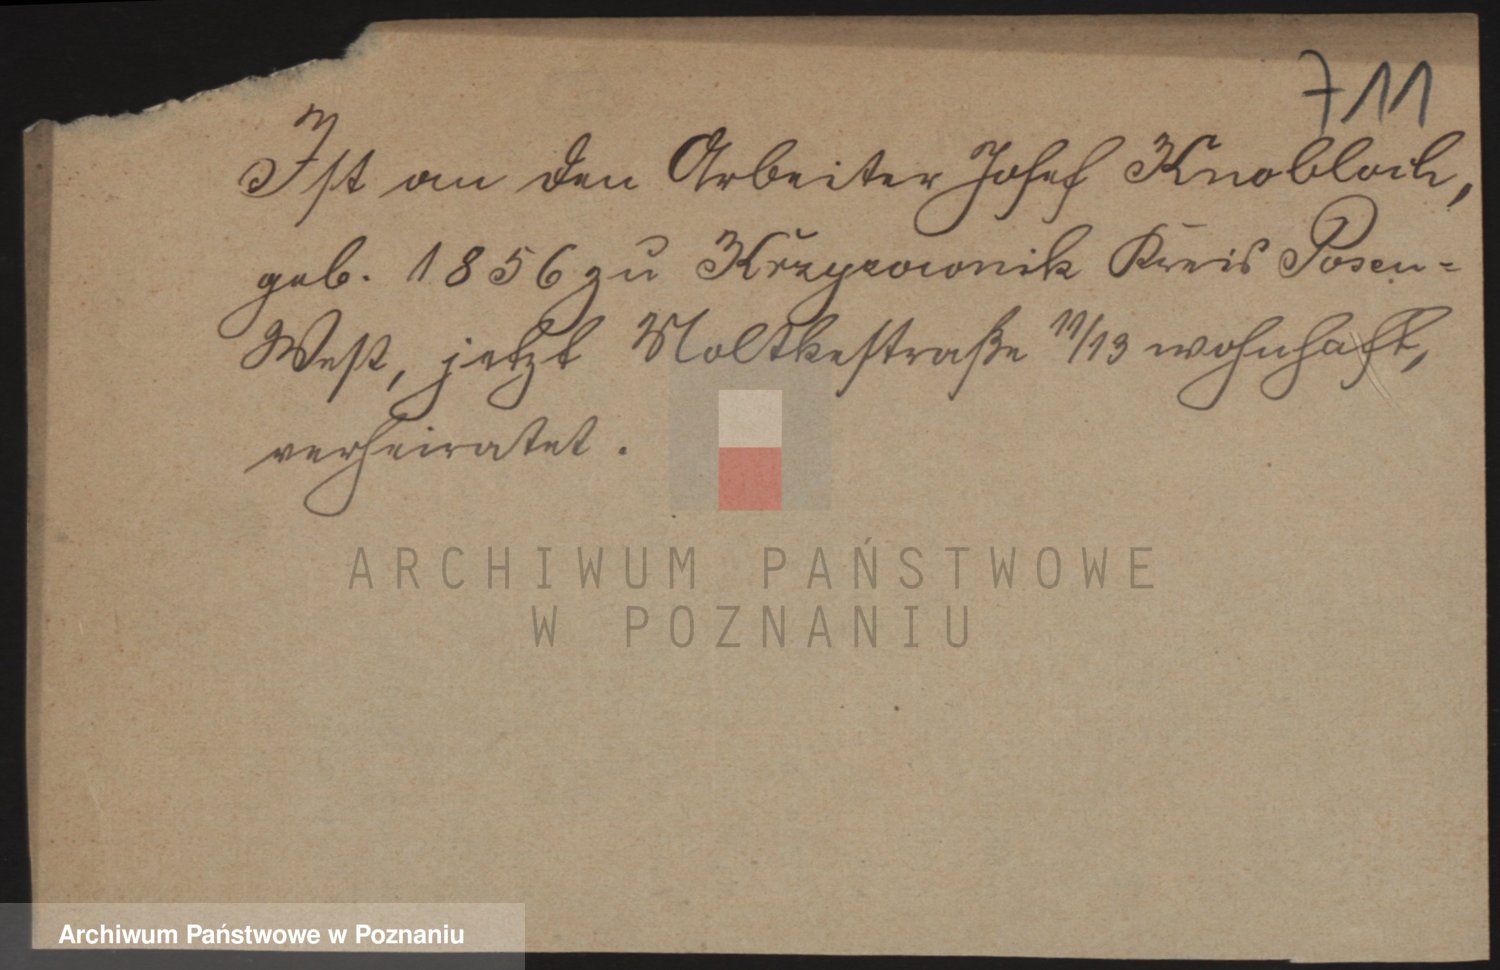 711
Ist an den Arbeiter Josef Knobloch,
geb. 1856 zu Krzyzownik Kreis Posen-
West, jetzt Moltkestraße 11/13 wohnhaft,
verheiratet.
ARCHIWUM PAŃSTWOWE
W POZNANIU
Archiwum Państwowe w Poznaniu